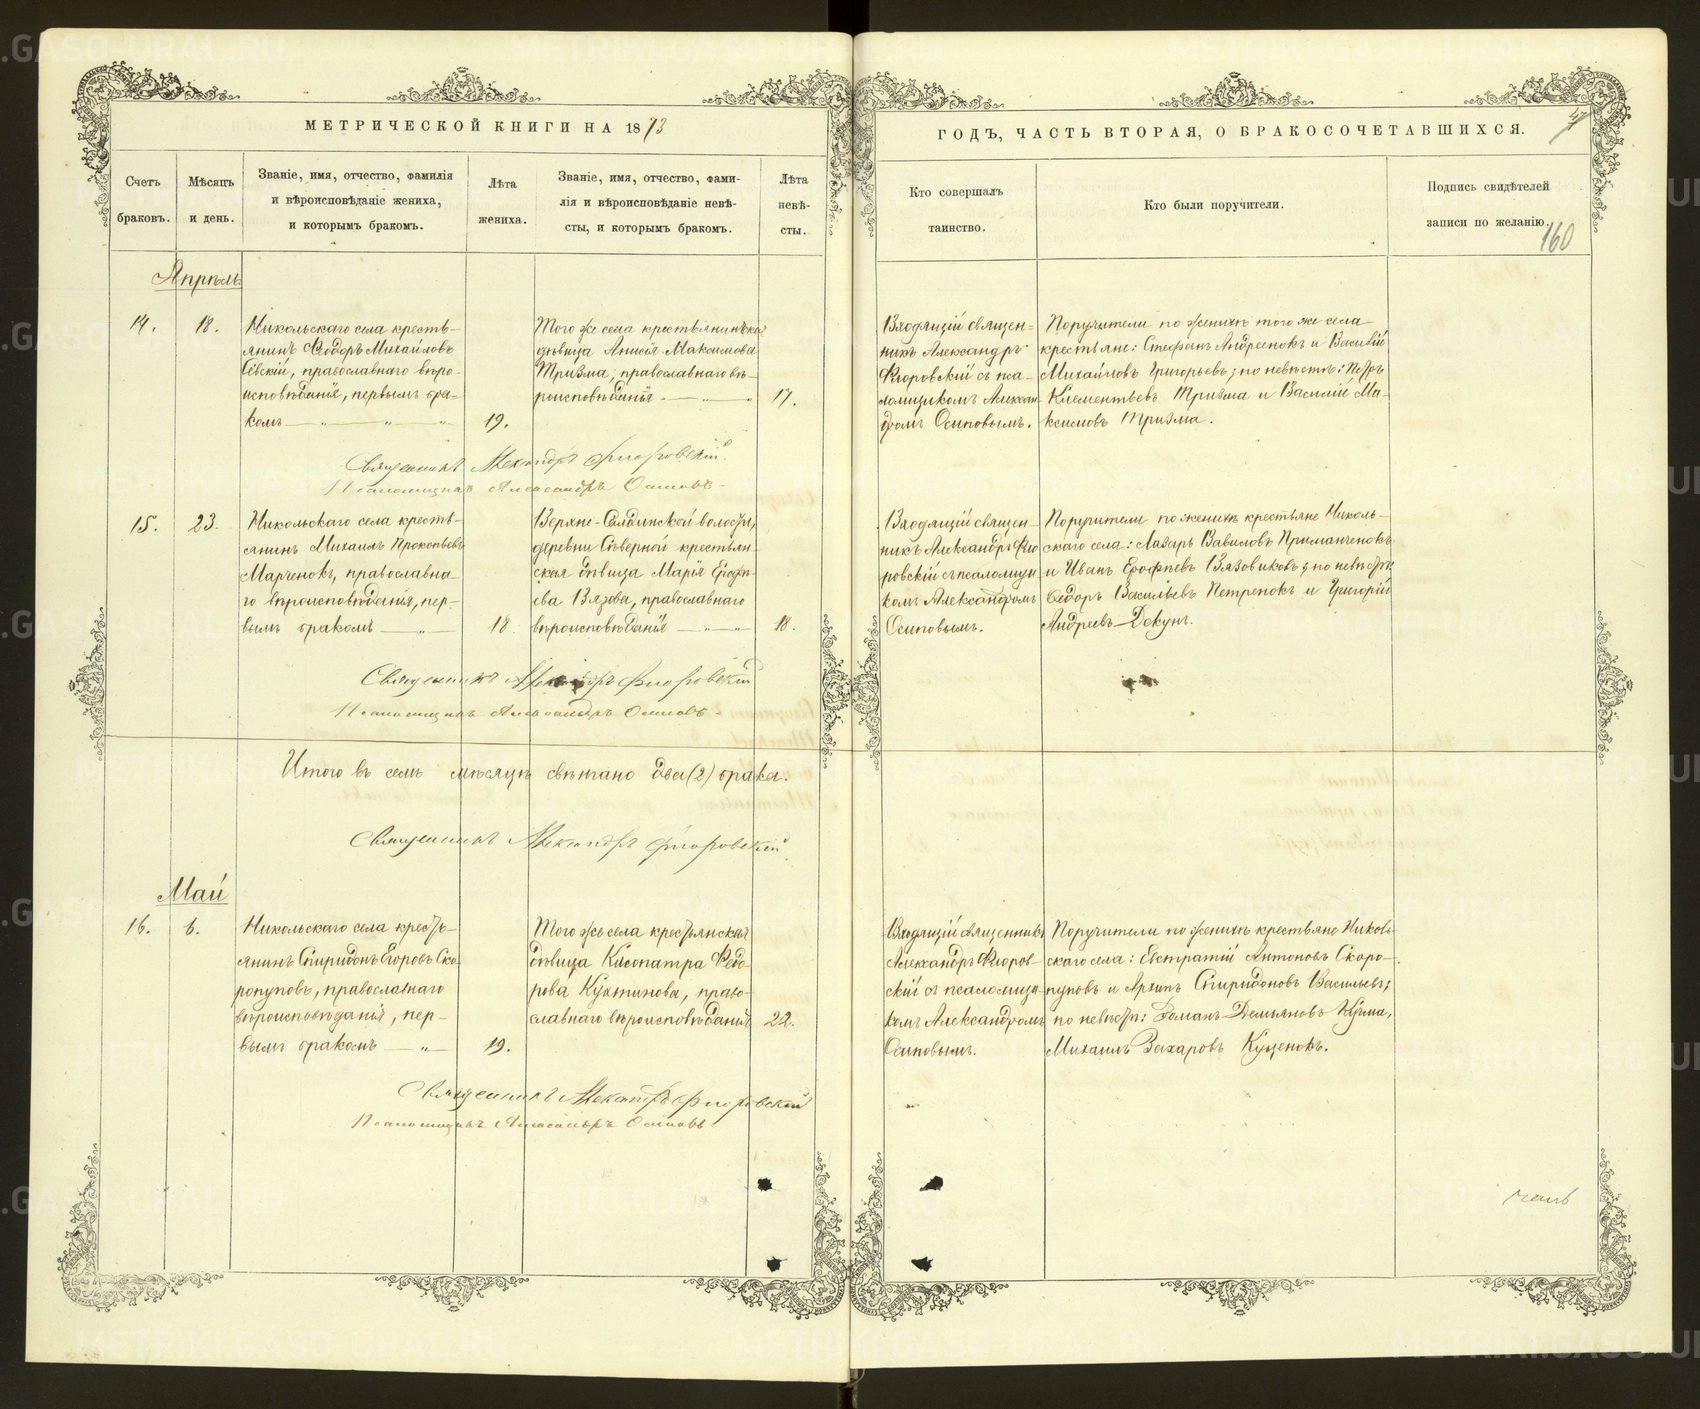 МЕТРИЧЕСКОЙ КНИГИ НА 1873
ГОДЪ, ЧАСТЬ ВТОРАЯ, О БРАКОСОЧЕТАВШИХСЯ.
47
160
Счетъ
браковъ.
Мѣсяцъ
и день.
Званіе, имя, отчество, фамилія
и вѣроисповѣданіе жениха,
и которымъ бракомъ.
Лѣта
жениха.
Званіе, имя, отчество, фами-
лія и вѣроисповѣданіе невѣ-
сты, и которымъ бракомъ.
Лѣта
невѣ-
сты.
Кто совершалъ
таинство.
Кто были поручители.
Подпись свидѣтелей
записи по желанію.
Апрѣль
14.
18.
Никольскаго села кресть-
янинъ Ѳедоръ Михайловъ
Сѣвскій, православнаго вѣро-
исповѣданія, первымъ бра-
комъ — „ — „ — „
19.
Того же села крестьянинская
дѣвица Анисія Максимова
Тризма, православнаго вѣ-
роисповѣданія — „ — „
17.
Входящій священ-
никъ Александръ
Флоровскій съ пса-
ломщикомъ Алексан-
дромъ Осиповымъ.
Поручители по женихѣ того же села
крестьяне: Стефанъ Андреенокъ и Василій
Михайловъ Григорьевъ; по невѣстѣ: Петръ
Клементьевъ Тризма и Василій Ма-
ксимовъ Тризма.
Священникъ Александръ Флоровскій
Псаломщикъ Александръ Осиповъ
15.
23.
Никольскаго села кресть-
янинъ Михаилъ Прокопьевъ
Марченокъ, православна-
го вѣроисповѣданія, пер-
вымъ бракомъ — „ —
18
Верхне-Салдинской волости,
деревни Сѣверной крестьян-
ская дѣвица Марія Ерофѣ-
ева Вязова, православнаго
вѣроисповѣданія — „ — „
18.
Входящій священ-
никъ Александръ Фло-
ровскій съ псаломщи-
комъ Александромъ
Осиповымъ.
Поручители по женихѣ крестьяне Николь-
скаго села: Лазарь Вавиловъ Приманченокъ
и Иванъ Ерофѣевъ Вязовиковъ; по невѣстѣ:
Ѳедоръ Васильевъ Петренокъ и Григорій
Андреевъ Декунъ.
Священникъ Александръ Флоровскій
Псаломщикъ Александръ Осиповъ
Итого въ семъ мѣсяцѣ свѣнчано два (2) брака.
Священникъ Александръ Флоровскій
Май
16.
6.
Никольскаго села кресть-
янинъ Спиридонъ Егоровъ Ско-
ропуповъ, православнаго
вѣроисповѣданія, пер-
вымъ бракомъ — „ —
19.
Того же села крестьянская
дѣвица Клеопатра Ѳедо-
рова Кухтинова, право-
славнаго вѣроисповѣданія
22.
Входящій священникъ
Александръ Флоров-
скій съ псаломщи-
комъ Александромъ
Осиповымъ.
Поручители по женихѣ крестьяне Николь-
скаго села: Евстратій Антоновъ Скоро-
пуповъ и Архипъ Спиридоновъ Васильевъ;
по невѣстѣ: Романъ Демьяновъ Кузма,
Михаилъ Захаровъ Куценокъ.
Священникъ Александръ Флоровскій
Псаломщикъ Александръ Осиповъ